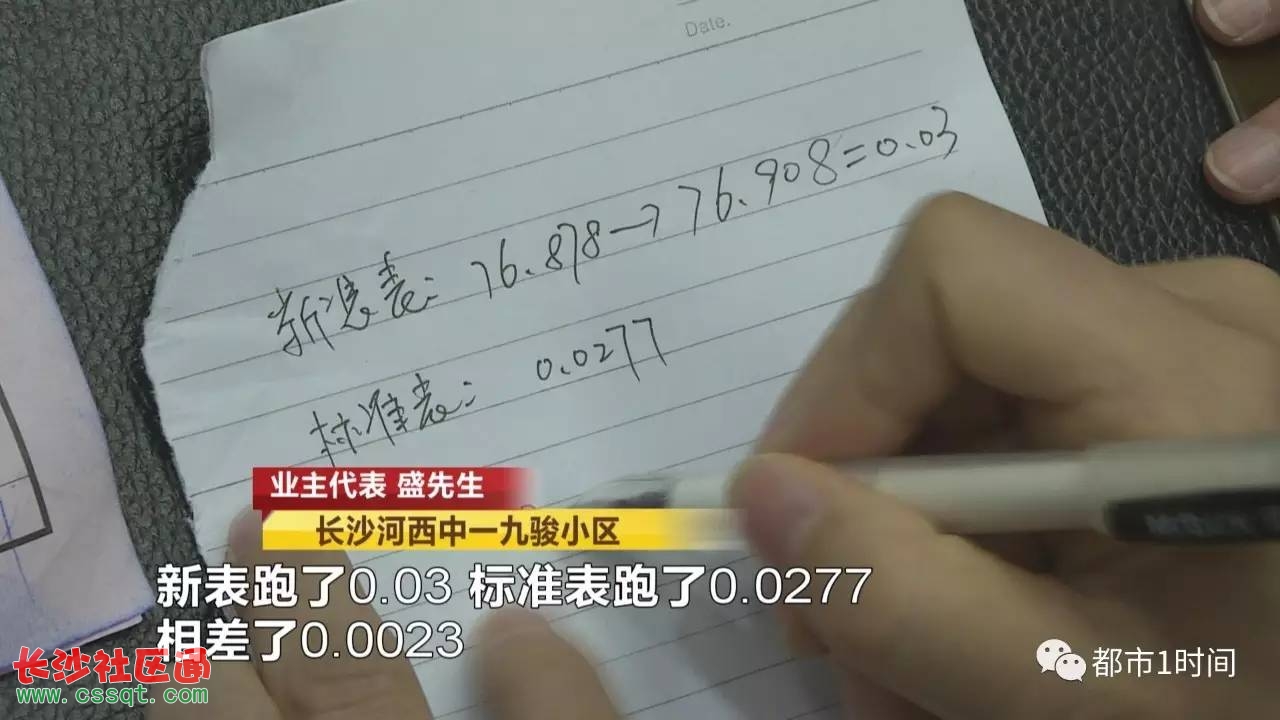 Date.
新准表: 76.878→76.908=0.03
标准表: 0.0277
业主代表 盛先生
长沙河西中一九骏小区
新表跑了0.03 标准表跑了0.0277
相差了0.0023
长沙社区通
www.cssqt.com
都市1时间